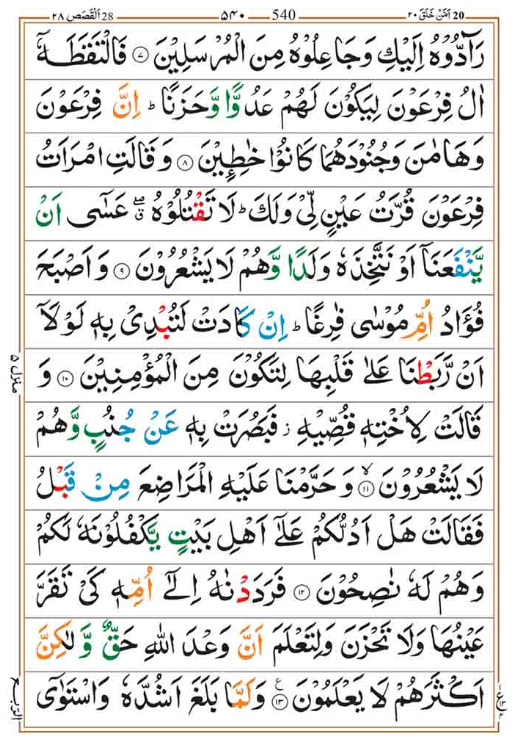 28 اَلْقَصَص ٢٨ ٥٤٠ 540 20 اَمَّنْ خَلَقَ ٢٠
رَآدُّوْهُ اِلَيْكِ وَجَاعِلُوْهُ مِنَ الْمُرْسَلِيْنَ ۝٧ فَالْتَقَطَهٗۤ
اٰلُ فِرْعَوْنَ لِيَكُوْنَ لَهُمْ عَدُوًّا وَّحَزَنًا ؕ اِنَّ فِرْعَوْنَ
وَهَامٰنَ وَجُنُوْدَهُمَا كَانُوْا خٰطِـِٕيْنَ ۝٨ وَقَالَتِ امْرَاَتُ
فِرْعَوْنَ قُرَّتُ عَيْنٍ لِّيْ وَلَكَ ؕ لَا تَقْتُلُوْهُ ۖۗ عَسٰۤى اَنْ
يَّنْفَعَنَاۤ اَوْ نَتَّخِذَهٗ وَلَدًا وَّهُمْ لَا يَشْعُرُوْنَ ۝٩ وَاَصْبَحَ
فُؤَادُ اُمِّ مُوْسٰى فٰرِغًا ؕ اِنْ كَادَتْ لَتُبْدِيْ بِهٖ لَوْلَاۤ
اَنْ رَّبَطْنَا عَلٰى قَلْبِهَا لِتَكُوْنَ مِنَ الْمُؤْمِنِيْنَ ۝١٠ وَ
قَالَتْ لِاُخْتِهٖ قُصِّيْهِ ؗ فَبَصُرَتْ بِهٖ عَنْ جُنُبٍ وَّهُمْ
لَا يَشْعُرُوْنَ ۝١١ۙ وَحَرَّمْنَا عَلَيْهِ الْمَرَاضِعَ مِنْ قَبْلُ
فَقَالَتْ هَلْ اَدُلُّكُمْ عَلٰۤى اَهْلِ بَيْتٍ يَّكْفُلُوْنَهٗ لَكُمْ
وَهُمْ لَهٗ نٰصِحُوْنَ ۝١٢ فَرَدَدْنٰهُ اِلٰۤى اُمِّهٖ كَيْ تَقَرَّ
عَيْنُهَا وَلَا تَحْزَنَ وَلِتَعْلَمَ اَنَّ وَعْدَ اللّٰهِ حَقٌّ وَّلٰكِنَّ
اَكْثَرَهُمْ لَا يَعْلَمُوْنَ ۝١٣ۧ وَلَمَّا بَلَغَ اَشُدَّهٗ وَاسْتَوٰۤى
منزل ٥